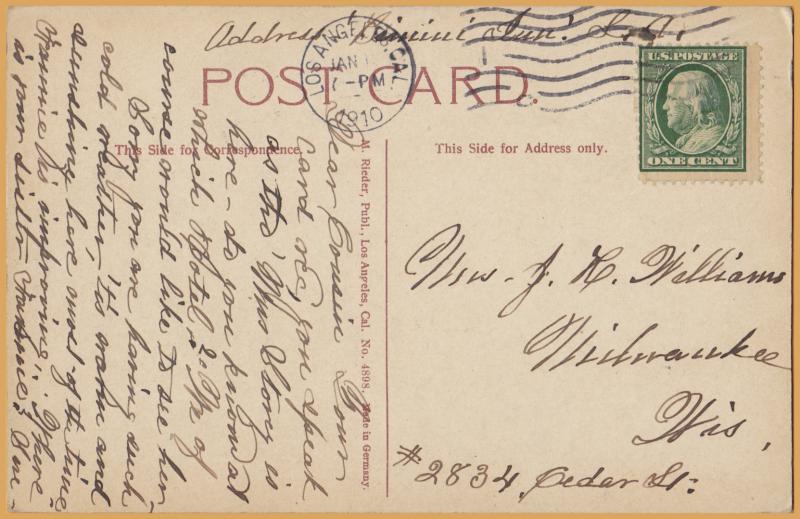 Address
LOS ANGELES, CAL.
JAN
7-PM
1910
U.S. POSTAGE
ONE CENT
POST CARD.
This Side for Correspondence.
This Side for Address only.
M. Rieder, Publ., Los Angeles, Cal. No. 4898. Made in Germany.
Mrs. J. H. Williams
Milwaukee
Wis,
#2834 Cedar St.
Dear Cousin Your
card rec, you speak
as tho' Mrs Story is
here - do you know at
which Hotel? We of
course would like to see her
Sorry you are having such
cold weather, 'tis warm and
sunshine here most of the time
Fannie is improving. Where
is your sister